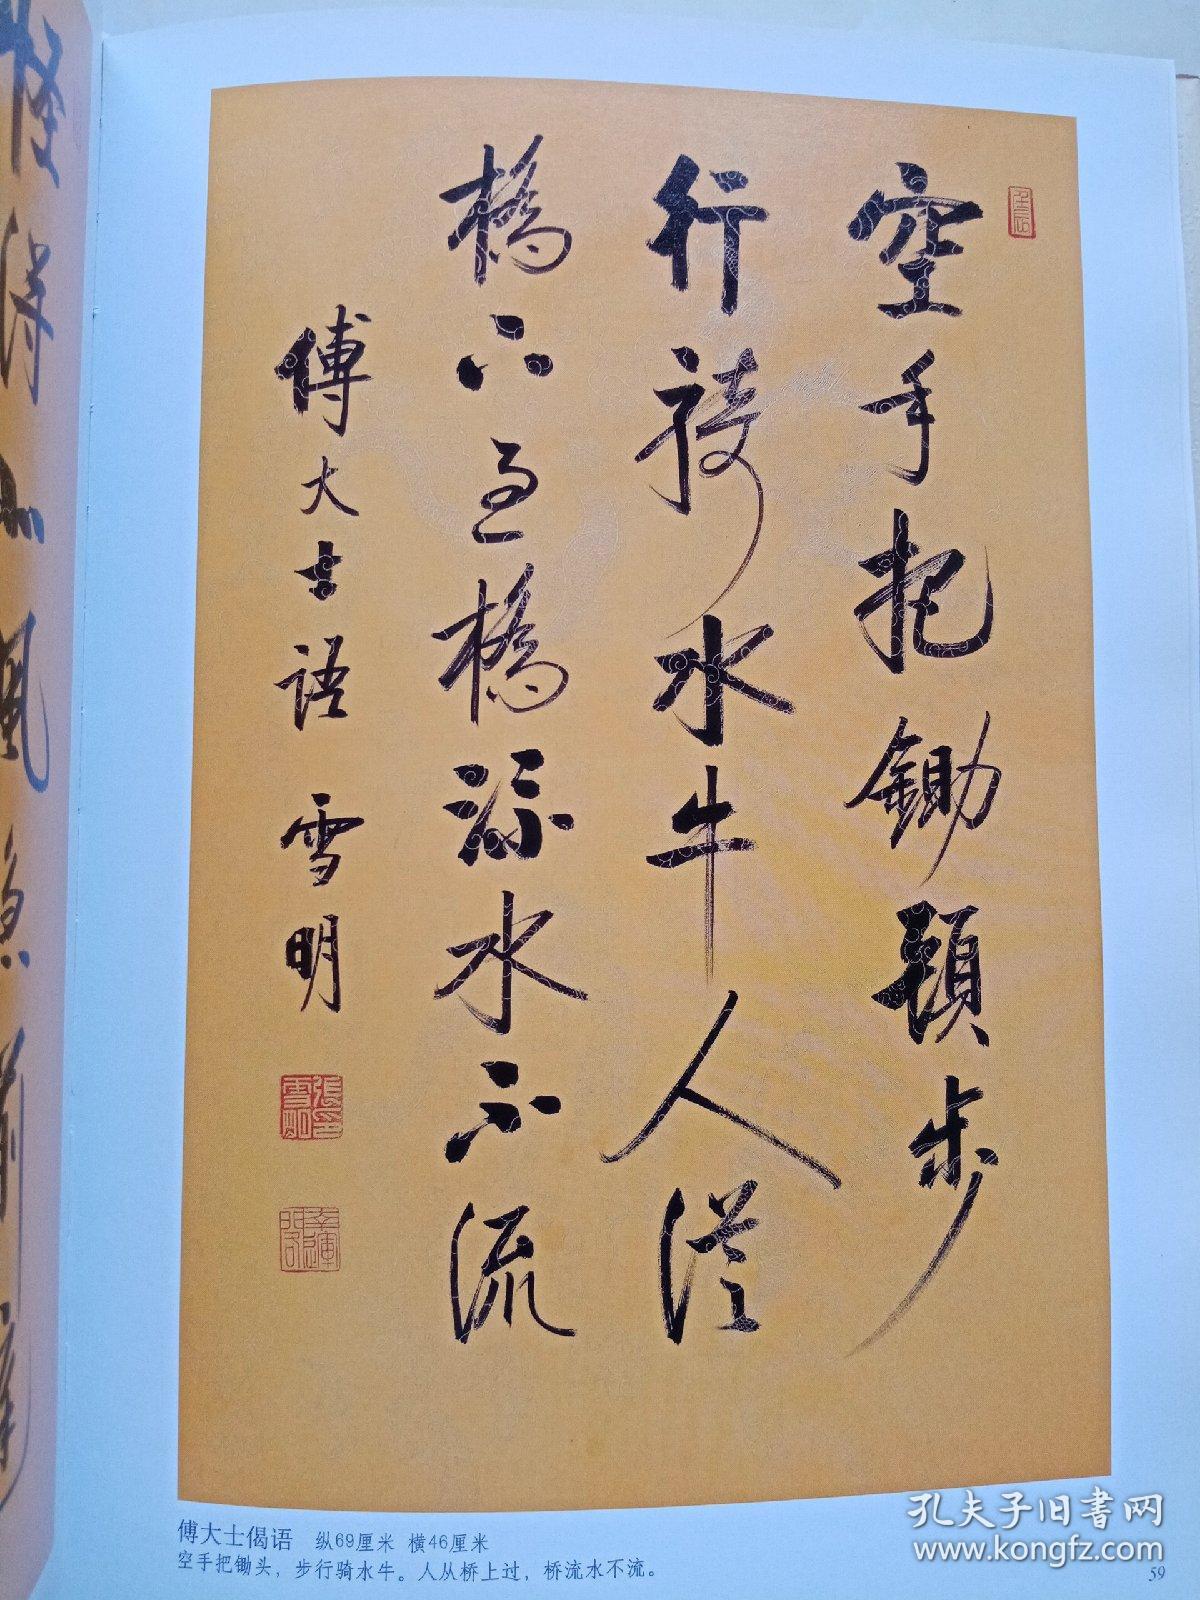 空手把鋤頭步
行騎水牛人從
橋上過橋流水不流
傅大士語 雪明
怪得北風急前庭
傅大士偈语 纵69厘米 横46厘米
空手把锄头，步行骑水牛。人从桥上过，桥流水不流。
59
孔夫子旧书网
www.kongfz.com